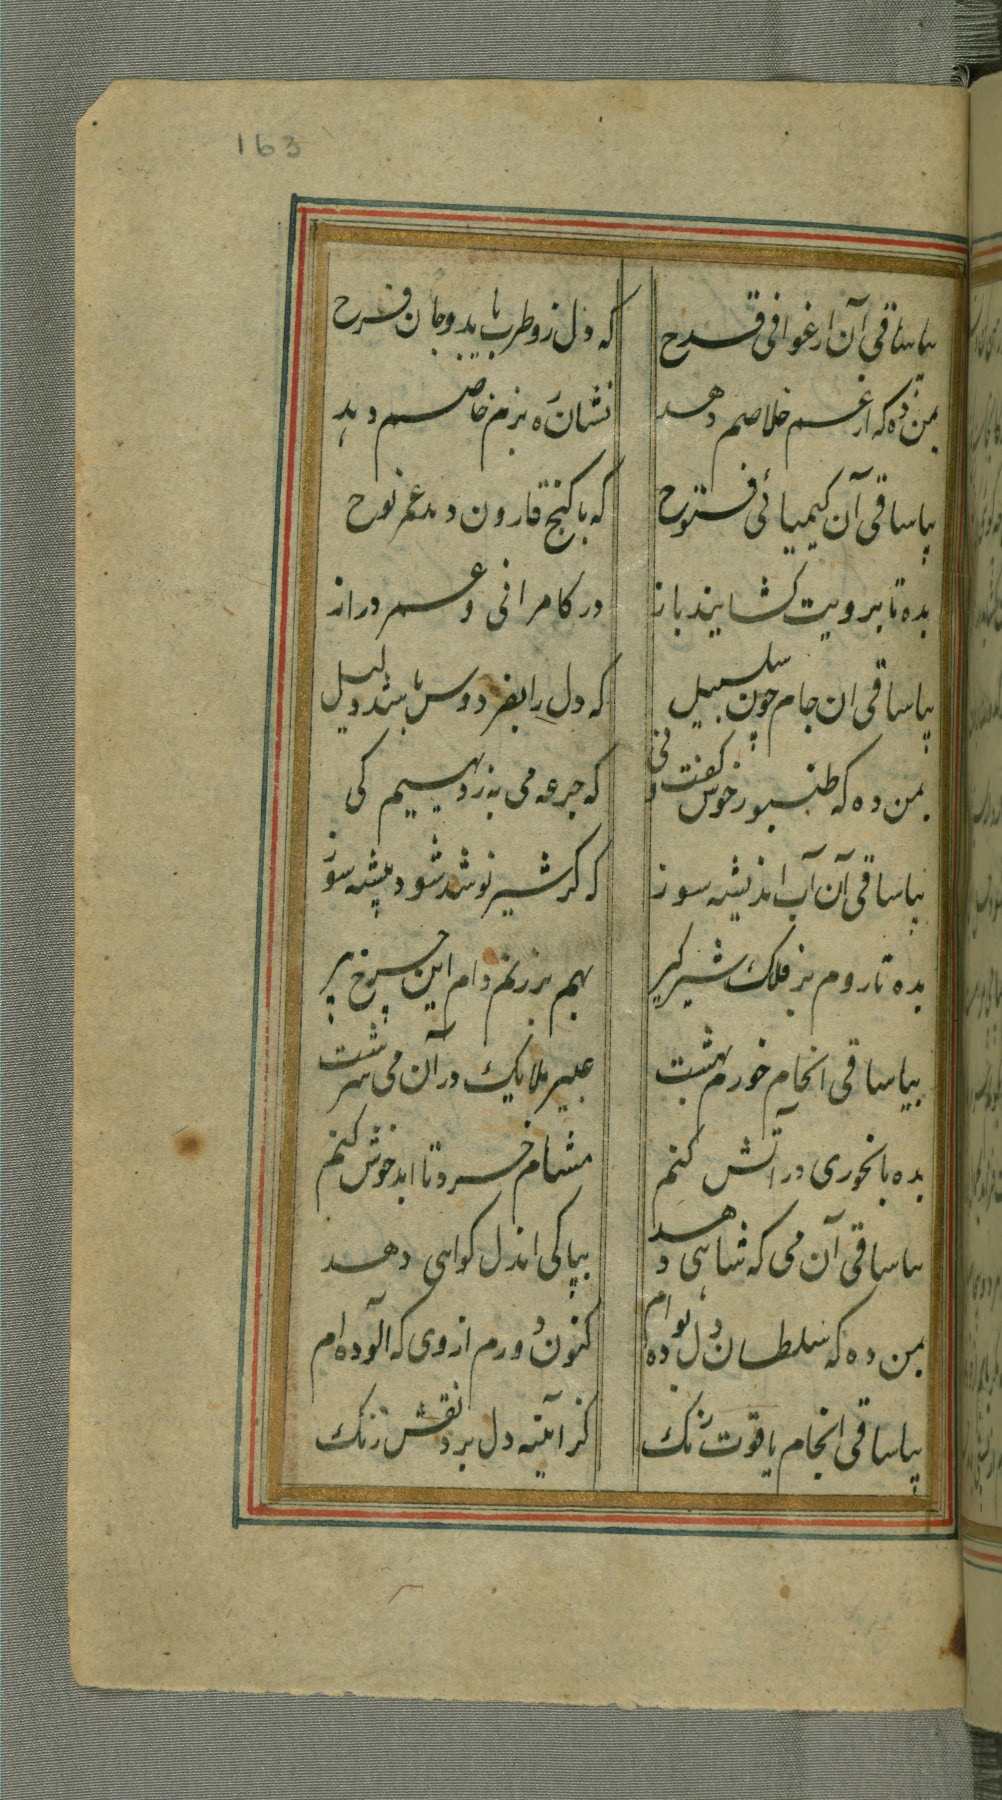 163
بیا ساقی آن ارغوانی قدح
که دل زو طرب یابد و جان فرح
بمن ده که از غم خلاصم دهد
نشان ره بزم خاصم دهد
بیا ساقی آن کیمیائی فتوح
که با کنج قارون دهد عمر نوح
بده تا برویت کشایند باز
در کامرانی و عمر دراز
بیا ساقی ان جام چون سلسبیل
که دل را بفردوس باشد دلیل
بمن ده که طنبور خوش کفت و نی
که جرعه می به ز دیهیم کی
بیا ساقی آن آب اندیشه سوز
که کر شیر نوشد شود بیشه سوز
بده تا روم بر فلک شیر کیر
بهم بر زنم دام این چرخ پیر
بیا ساقی انجام خور بهشت
عبیر ملایک در آن می سرشت
بده تا بخوری در آتش کنم
مشام خرد تا ابد خوش کنم
بیا ساقی آن می که شاهی دهد
بپاکی اندل کواهی دهد
بمن ده که سلطان دل بوده ام
کنون دورم از وی که آلوده ام
بیا ساقی انجام یاقوت رنک
کز آیینه دل برد نقش زنک